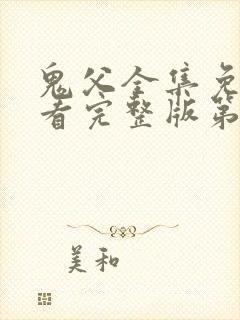 鬼父全集免
看完整版第
美和